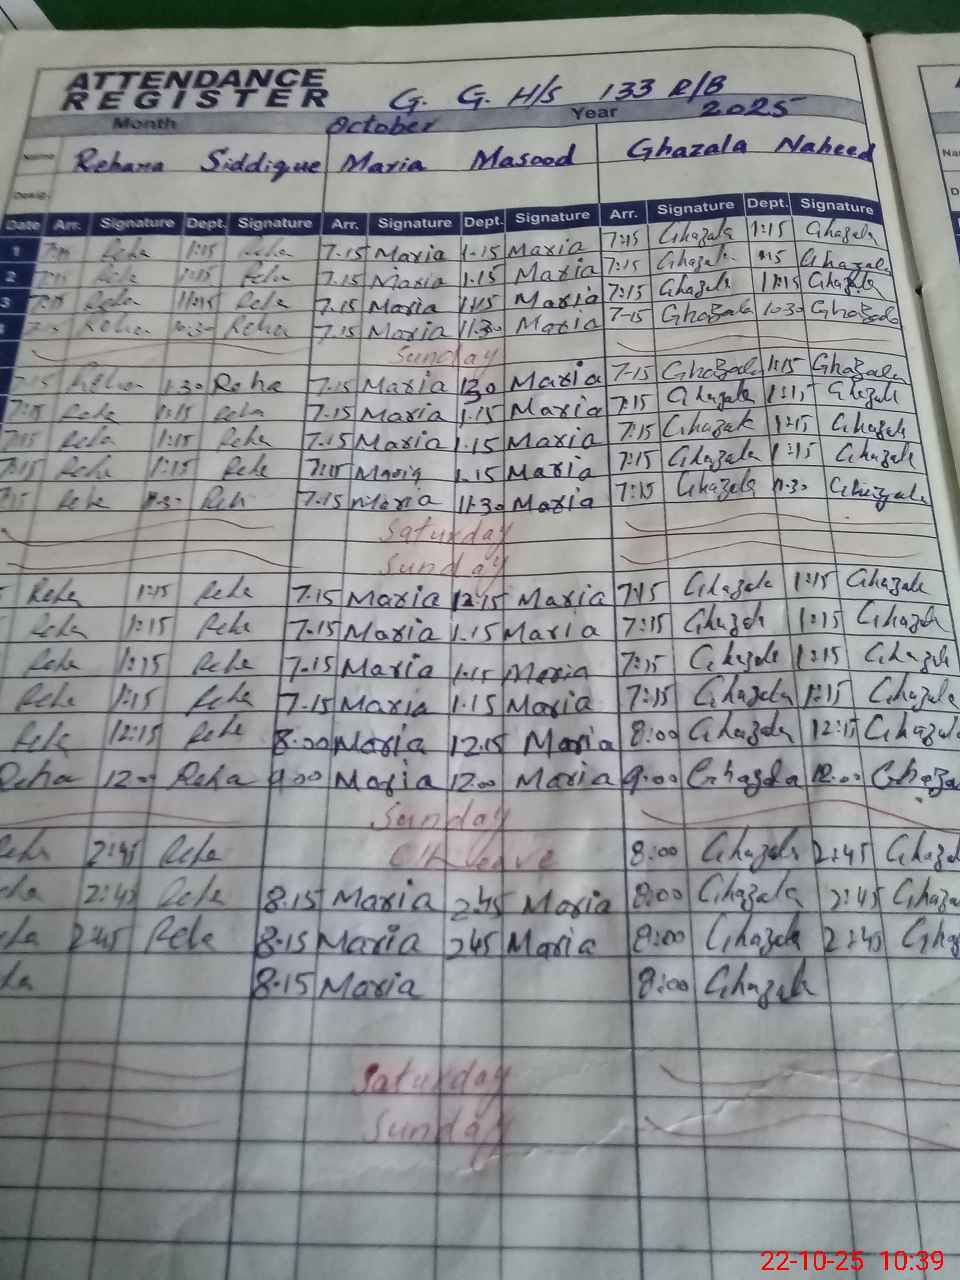 ATTENDANCE
REGISTER G. G. H/S 133 R/B
Month October Year 2025
Name Rehana Siddique Maria Masood Ghazala Naheed
Date Arr. Signature Dept. Signature Arr. Signature Dept. Signature Arr. Signature Dept. Signature
1 7:15 Reha 1:15 Reha 7.15 Maria 1.15 Maria 7:15 Ghazala 1:15 Ghazala
2 7:15 Reha 1:15 Reha 7.15 Maria 1.15 Maria 7:15 Ghazala Ghazala
3 7:15 Reha Reha 7.15 Maria Maria 7:15 Ghazala Ghazala
Reha 7.15 Maria 11.30 Maria 7-15 Ghazala 10:30 Ghazala
Sunday
7.15 1.30 Reha 7.15 Maria Maria 7-15 Ghazala 1:15 Ghazala
7:15 Reha 1:15 Reha 7.15 Maria 1.15 Maria 7:15 Ghazala 1:15 Ghazala
7:15 Reha 1:15 Reha 7.15 Maria 1.15 Maria 7:15 Ghazala 1:15 Ghazala
7:15 Reha 1:15 Reha Maria 1.15 Maria 7:15 Ghazala 1:15 Ghazala
Reha Reh 7.15 Maria 11.30 Maria 7:15 Ghazala 11:30 Ghazala
Saturday
Sunday
Reha 1:15 Reha 7.15 Maria 12.15 Maria 7:15 Ghazala 1:15 Ghazala
Reha 1:15 Reha 7.15 Maria 1.15 Maria 7:15 Ghazala 1:15 Ghazala
Reha 1:15 Reha 7.15 Maria 1.15 Maria 7:15 Ghazala 1:15 Ghazala
Reha 1:15 Reha 7.15 Maria 1.15 Maria 7:15 Ghazala 1:15 Ghazala
Reha 12:15 Reha 8.00 Maria 12.15 Maria 8:00 Ghazala 12:15 Ghazala
Reha 12.00 Reha 9.00 Maria 12.00 Maria 9:00 Ghazala 12:00 Ghaza
Sunday
2:45 Reha leave 8:00 Ghazala 2:45 Ghazal
2:45 Reha 8.15 Maria 2.45 Maria 8:00 Ghazala 2:45 Ghaza
2:45 Reha 8.15 Maria 2.45 Maria 8:00 Ghazala 2:45 Ghaz
8.15 Maria 8:00 Ghazala
Saturday
Sunday
22-10-25 10:39